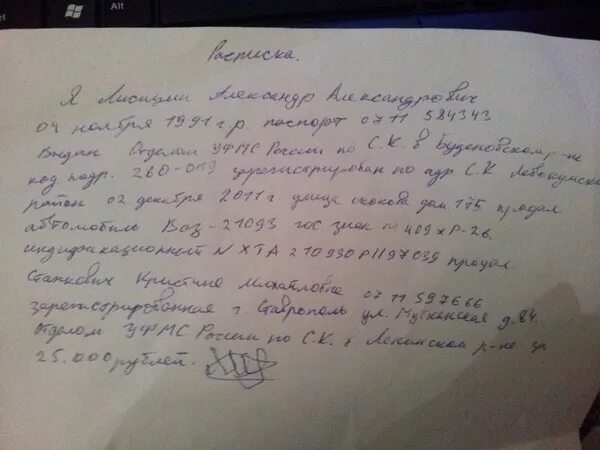 Alt
Расписка.
Я Лисицин Александр Александрович
04 ноября 1991 г.р. паспорт 0711 584343
Выдан Отделом УФМС России по С.К. в Буденовском р-не
код подр. 260-019 зарегистрирован по адр С.К Левокумский
район 02 декабря 2011 г. улица дом. 175 продал
автомобиль Ваз-21093 гос. знак 409 хР-26.
N XTA 210930 P1197039 продал.
Станкевич Кристине Михайловне 0711 597666
зарегистрированная г. Ставрополь ул. д. 84
Отделом УФМС России по С.К. в Ленинском р-не за
25.000 рублей.